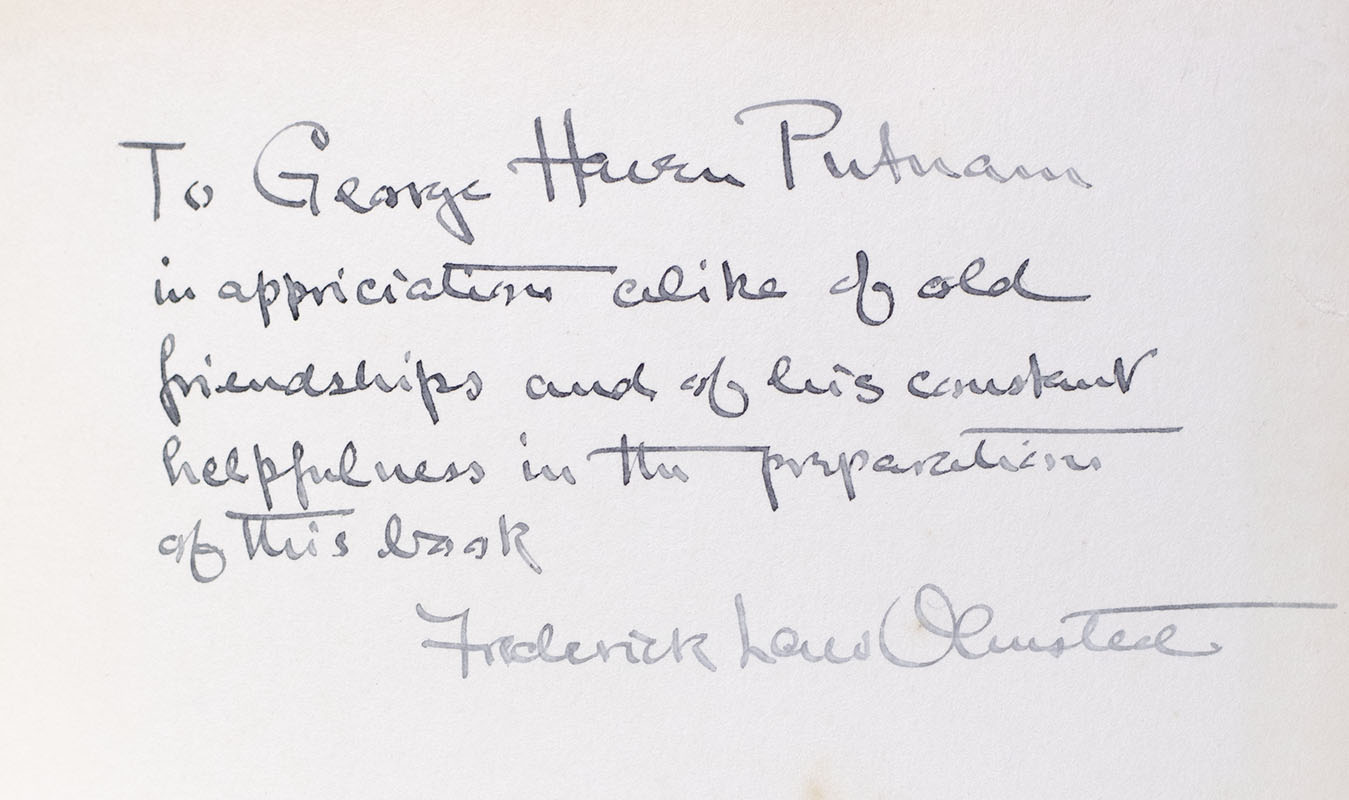 To George Haven Putnam
in appriciation alike of old
friendships and of his constant
helpfulness in the preparation
of this book
Frederick Law Olmsted